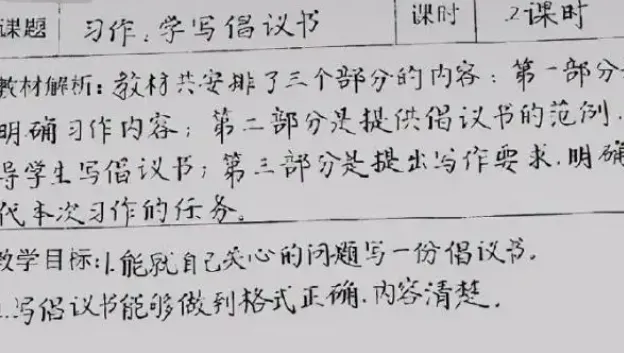 课题 习作:学写倡议书 课时 2课时
教材解析:教材共安排了三个部分的内容:第一部分
明确习作内容;第二部分是提供倡议书的范例.
导学生写倡议书;第三部分是提出写作要求.明确
代本次习作的任务。
教学目标:1.能就自己关心的问题写一份倡议书.
.写倡议书能够做到格式正确.内容清楚.